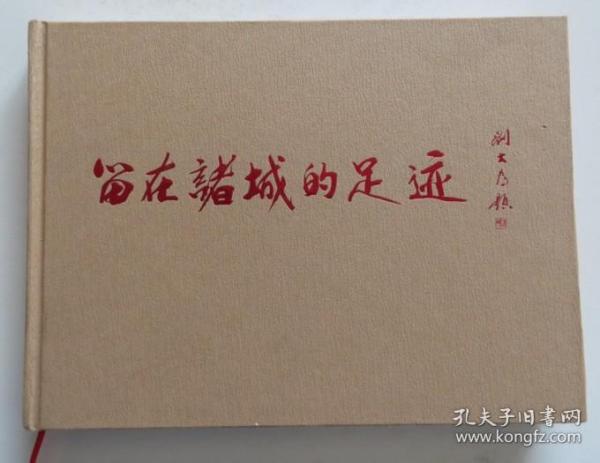 留在諸城的足迹
劉大為題
孔夫子旧書网
www.kongfz.com